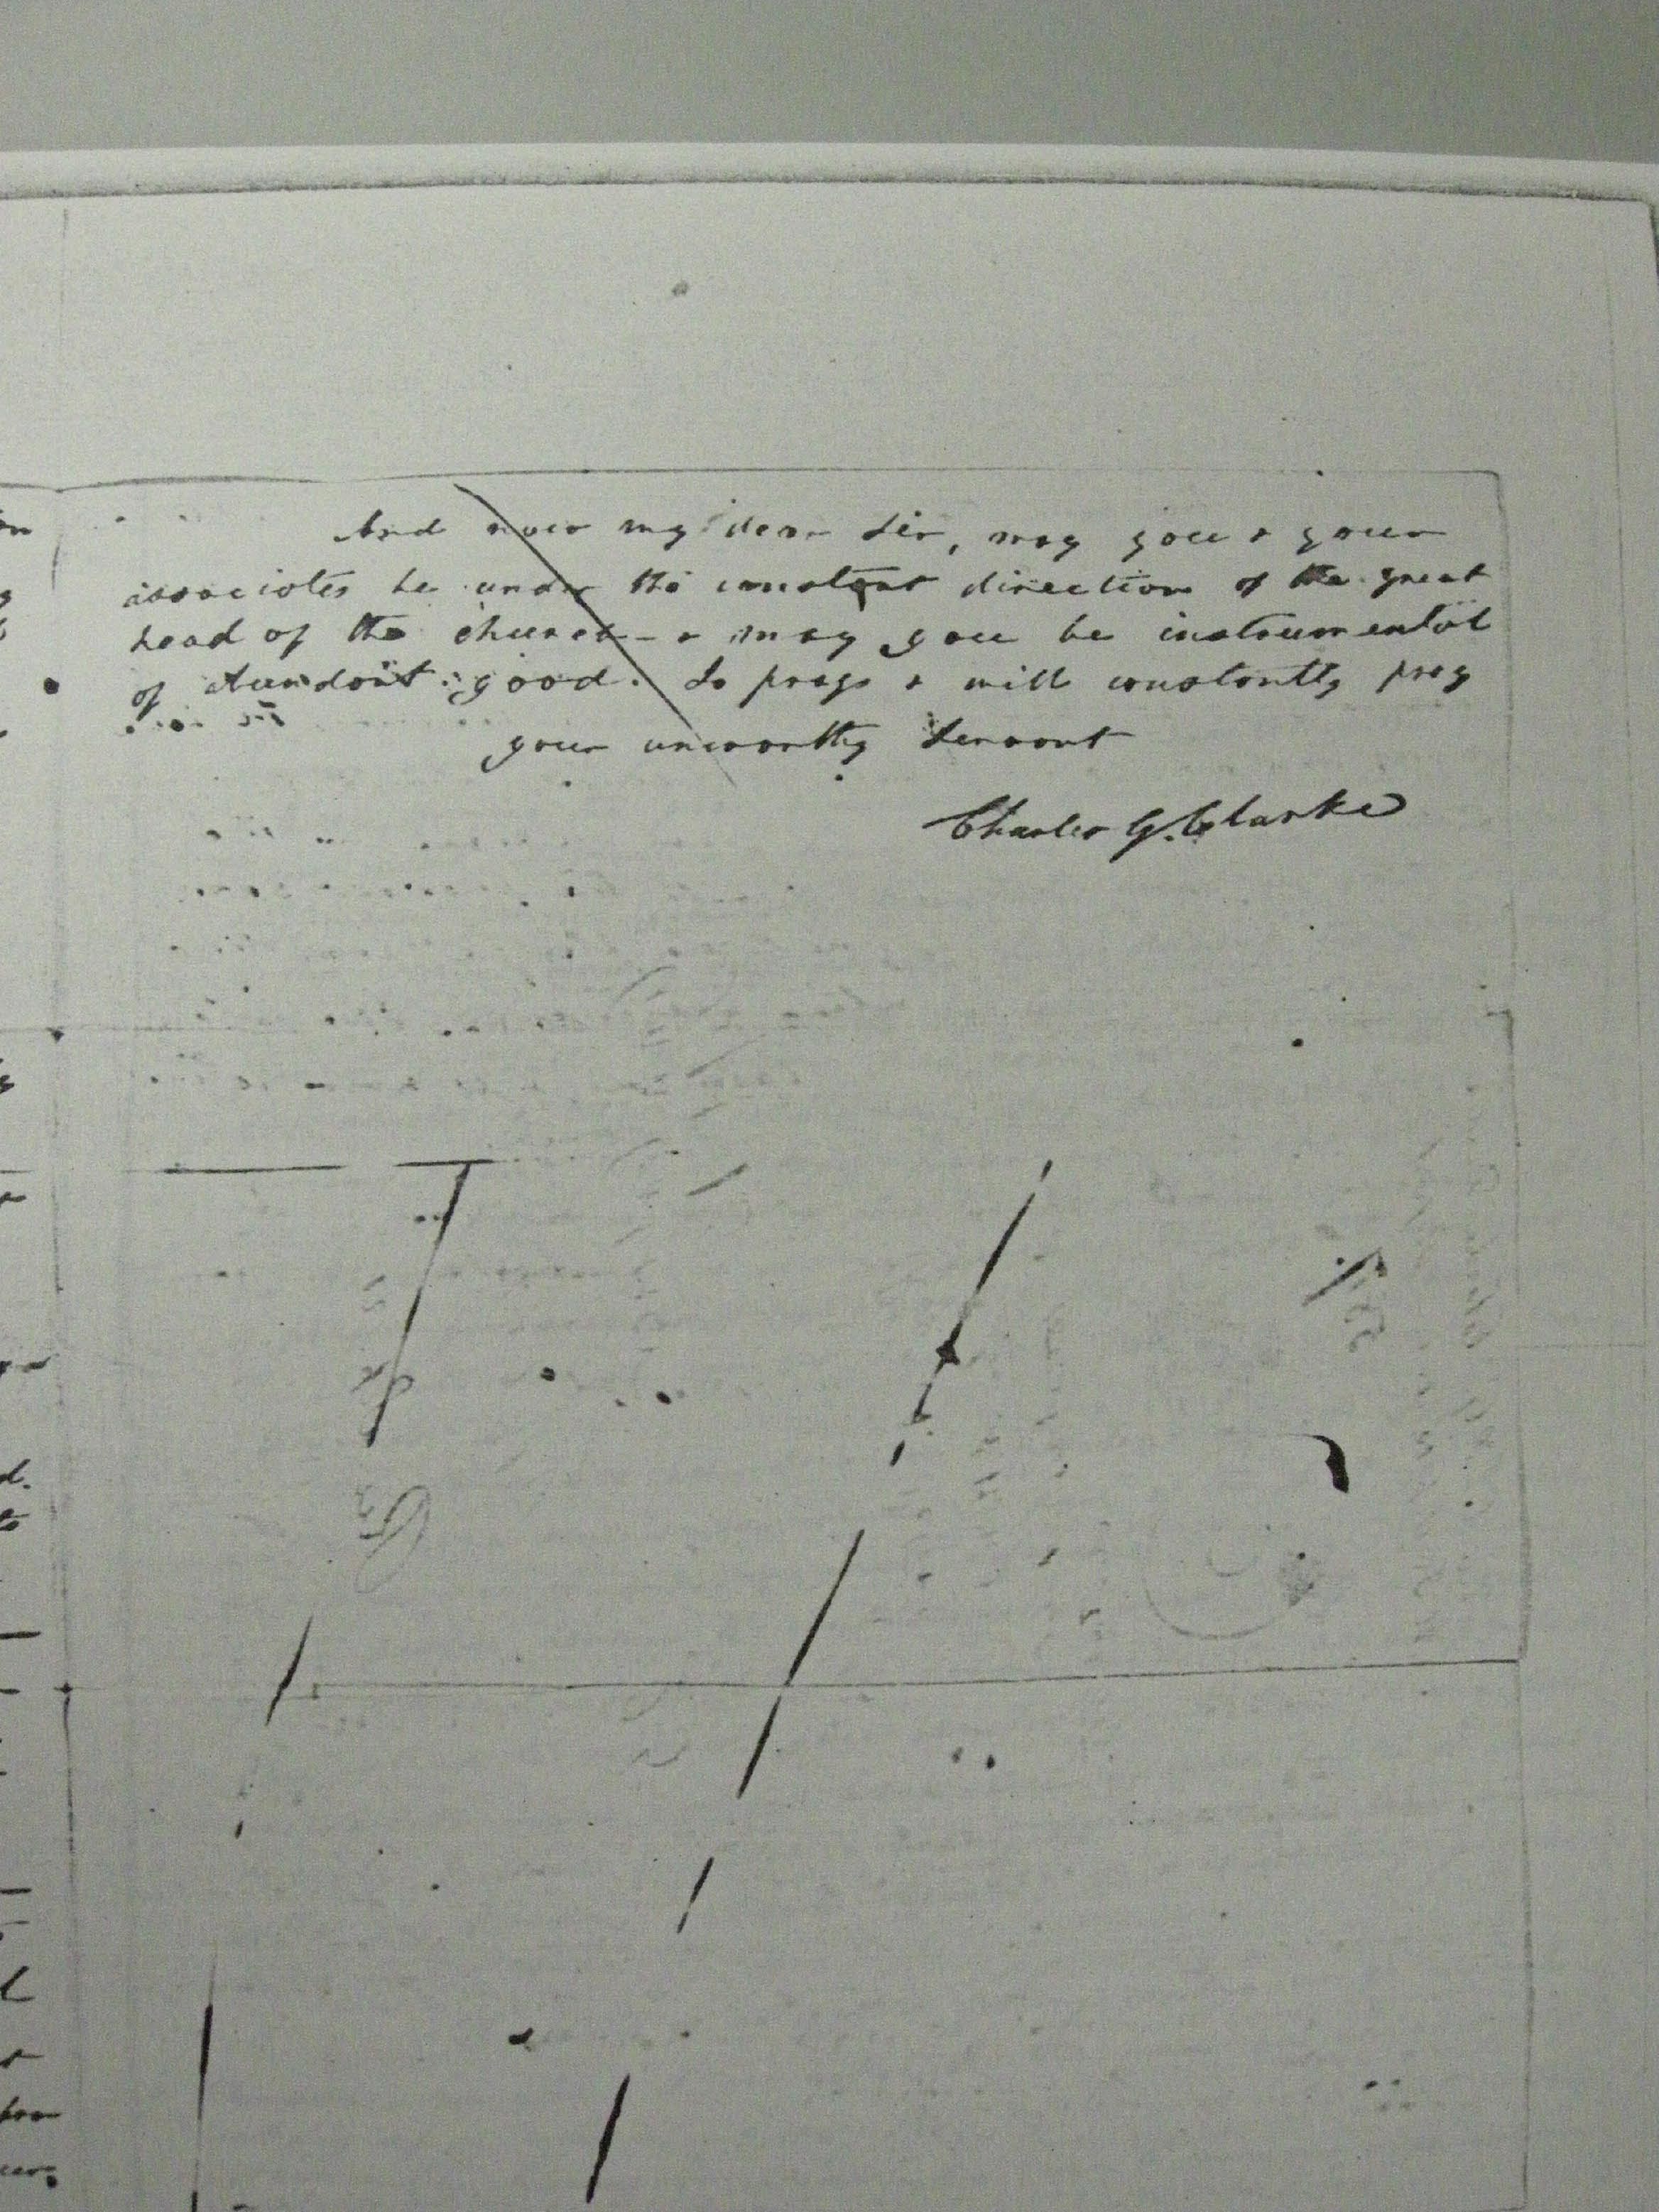 And now my dear Sir, may you & your
associates be under the constant direction of the great
head of the church - & may you be instrumental
of abundant good. So prays & will constantly pray
your unworthy Servant
Charles G. Clarke